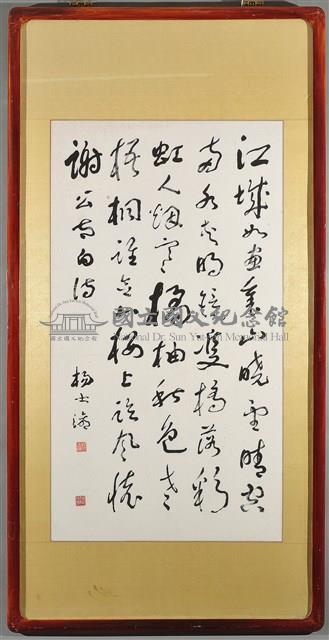 江城如畫裏山曉望晴空
兩水夾明鏡雙橋落彩
虹人煙寒橘柚秋色老
梧桐誰念北樓上臨風懷
謝公李白詩
楊士
國立國父紀念館
National Dr. Sun Yat-sen Memorial Hall